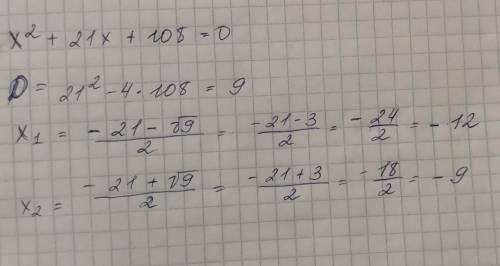 x² + 21x + 108 = 0
D = 21² - 4 · 108 = 9
x₁ = (-21 - √9)/2 = (-21 - 3)/2 = -24/2 = -12
x₂ = (-21 + √9)/2 = (-21 + 3)/2 = -18/2 = -9